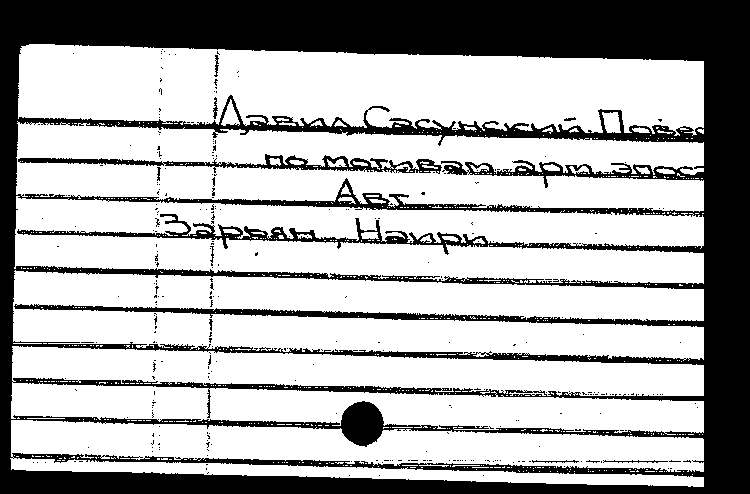 Давид Сасунский. Повес
по мотивам арм. эпоса
Авт.
Зарьян, Наири